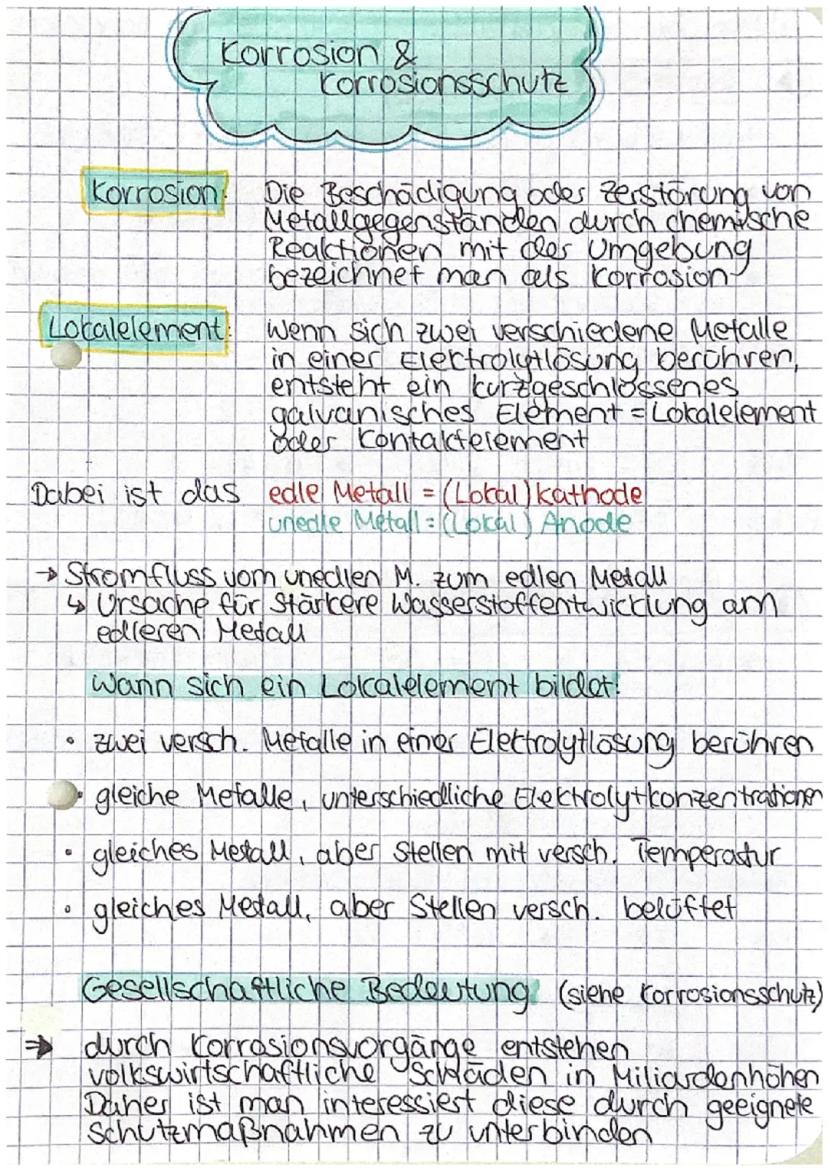 Korrosion &
Korrosionsschutz
Korrosion: Die Beschädigung oder Zerstörung von
Metallgegenständen durch chemische
Reaktionen mit der Umgebung
bezeichnet man als Korrosion
Lokalelement: Wenn sich zwei verschiedene Metalle
in einer Elektrolytlösung berühren,
entsteht ein kurzgeschlossenes
galvanisches Element = Lokalelement
oder Kontaktelement
Dabei ist das edle Metall = (Lokal) Kathode
unedle Metall = (Lokal) Anode
→ Stromfluss vom unedlen M. zum edlen Metall
↳ Ursache für stärkere Wasserstoffentwicklung am
edleren Metall
Wann sich ein Lokalelement bildet:
• zwei versch. Metalle in einer Elektrolytlösung berühren
• gleiche Metalle, unterschiedliche Elektrolytkonzentrationen
• gleiches Metall, aber Stellen mit versch. Temperatur
• gleiches Metall, aber Stellen versch. belüftet
Gesellschaftliche Bedeutung: (siehe Korrosionsschutz)
⇒ durch Korrosionsvorgänge entstehen
volkswirtschaftliche Schäden in Miliardenhöhen
Daher ist man interessiert diese durch geeignete
Schutzmaßnahmen zu unterbinden